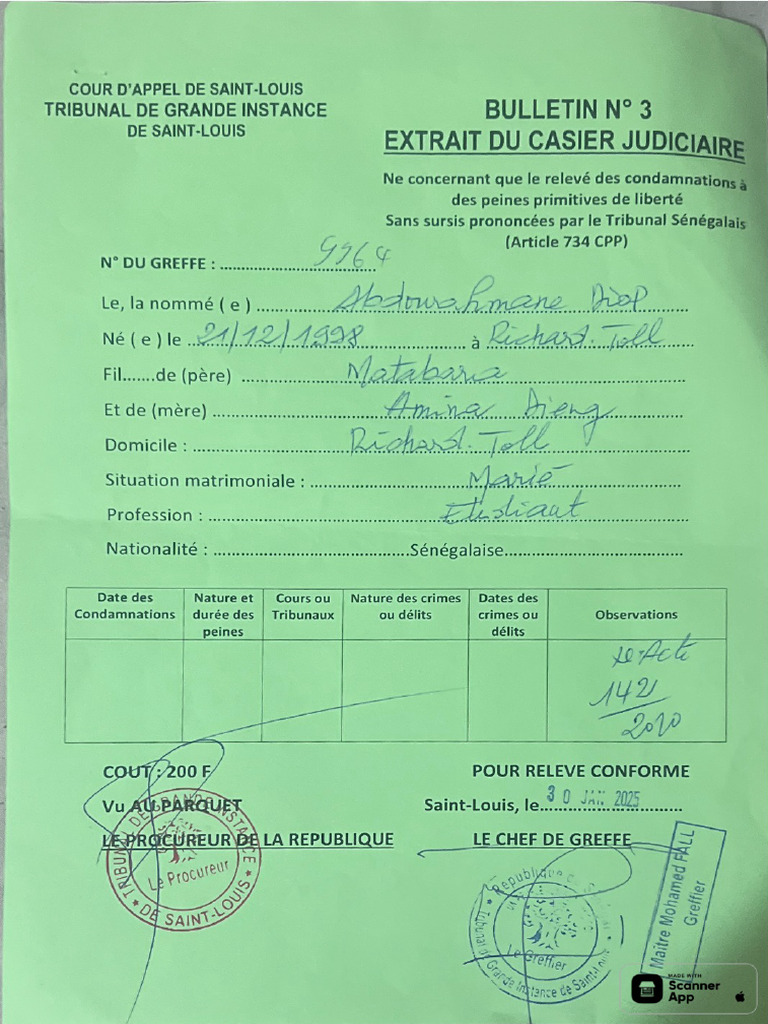 COUR D'APPEL DE SAINT-LOUIS
TRIBUNAL DE GRANDE INSTANCE
DE SAINT-LOUIS
BULLETIN N° 3
EXTRAIT DU CASIER JUDICIAIRE
Ne concernant que le relevé des condamnations à
des peines primitives de liberté
Sans sursis prononcées par le Tribunal Sénégalais
(Article 734 CPP)
N° DU GREFFE : 9964
Le, la nommé ( e ) Abdourahmane Diop
Né ( e ) le 21/12/1998 à Richard-Toll
Fil.......de (père) Matabara
Et de (mère) Amina Dieng
Domicile : Richard-Toll
Situation matrimoniale : Marié
Profession : Etudiant
Nationalité : Sénégalaise
Date des Condamnations
Nature et durée des peines
Cours ou Tribunaux
Nature des crimes ou délits
Dates des crimes ou délits
Observations
Acte
142
2010
COUT : 200 F
POUR RELEVE CONFORME
Vu AU PARQUET
Saint-Louis, le 30 JAN 2025
LE PROCUREUR DE LA REPUBLIQUE
LE CHEF DE GREFFE
TRIBUNAL DE GRANDE INSTANCE
Le Procureur
DE SAINT-LOUIS
République
Le Greffier
Tribunal de Grande Instance de Saint-Louis
Maître Mohamed FALL
Greffier
MADE WITH
Scanner
App